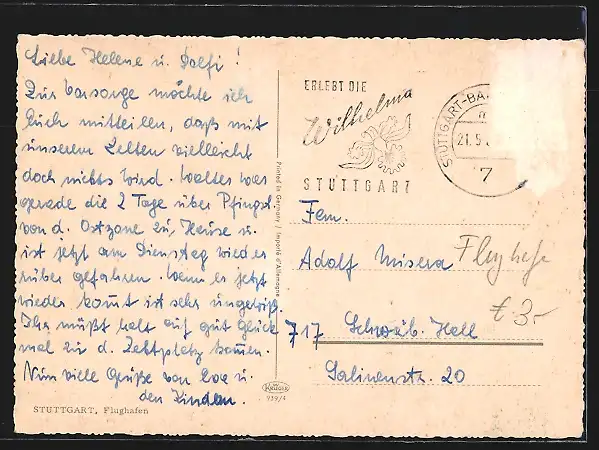 Liebe Helene u. Dolfi!
Zur Vorsorge möchte ich
Euch mitteilen, daß mit
unserem Zelten vielleicht
doch nichts wird. Walter war
gerade die 2 Tage über Pfingst.
von d. Ostzone zu Hause u.
ist jetzt am Dienstag wieder
rüber gefahren. Wenn er jetzt
wieder kommt ist sehr ungewiß.
Ihr müßt halt auf gut Glück
mal zu d. Zeltplatz kommen.
Nun viele Grüße von Eva u.
den Kindern.
STUTTGART, Flughafen
Printed in Germany / Imprimé d'Allemagne
KRÜGER
939/4
ERLEBT DIE
Wilhelma
STUTTGART
STUTTGART-BA
21.5
7
Fam.
Adolf Misera
717 Schwäb. Hall
Salinenstr. 20
Flughafe
€ 3.-